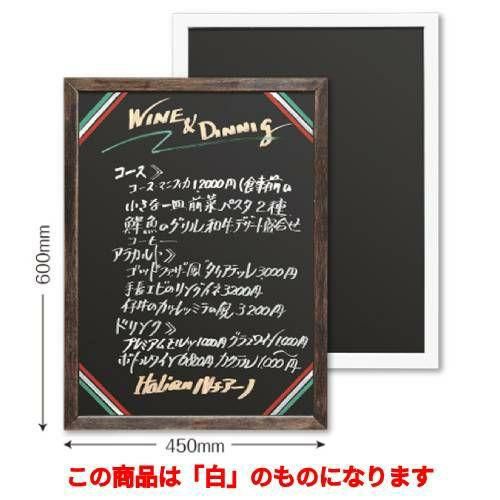 WINE & DINNIG
コース》
コースマニフィカ 12000円(食事前の
小さな一皿 前菜 パスタ2種
鮮魚のグリル 和牛 デザート盛合せ
コーヒー
アラカルト》
ゴッドファザー風 3000円
手長エビのリングイネ 3200円
3200円
ドリンク》
プレミアムモルツ 1000円 グラスワイン 1000円
ボトルワイン 6800円 カクテル 1000円〜
Italian
600mm
450mm
この商品は「白」のものになります